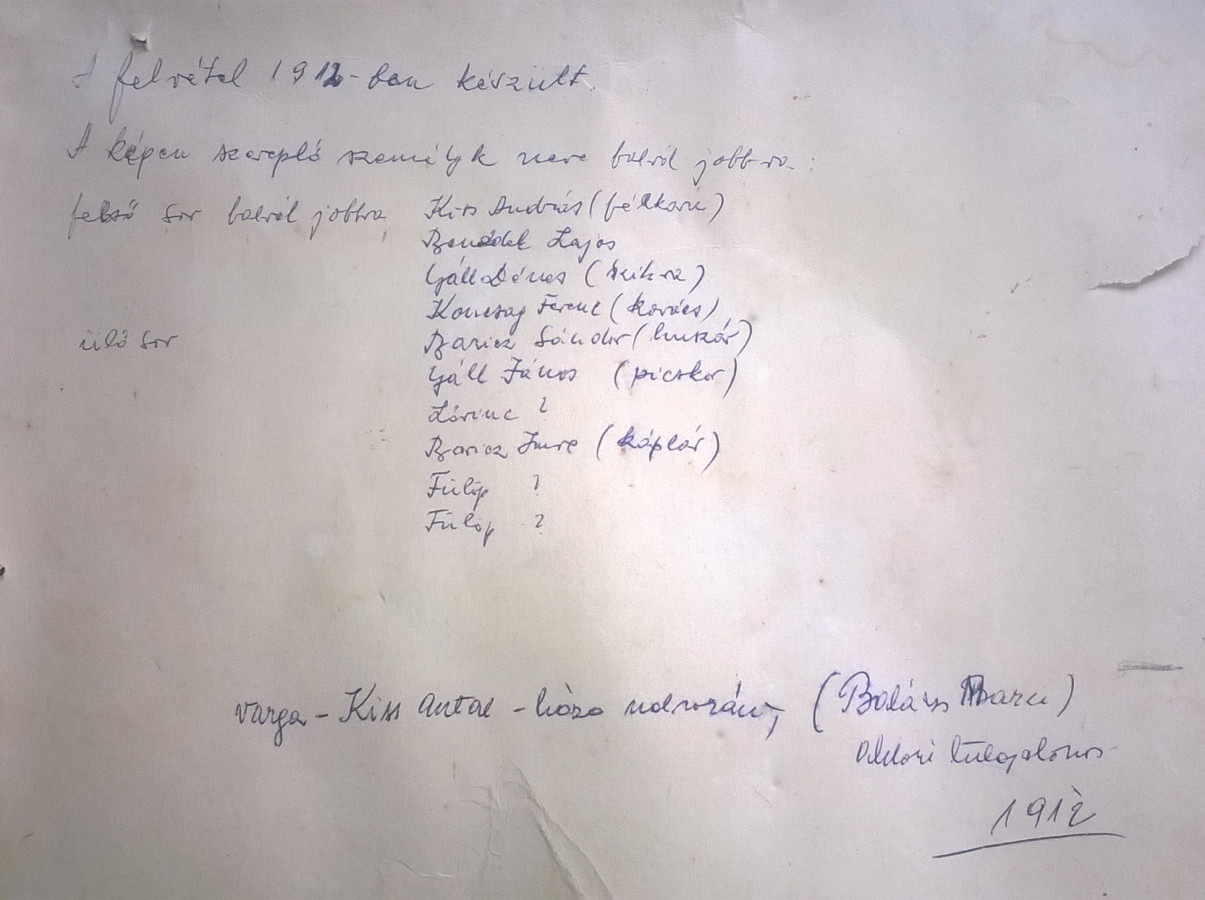 A felvétel 1912-ben készült.
A képen szereplő személyk neve balról jobbra:
felső sor balról jobbra, Kiss András (félkarú)
Benedek Lajos
Gáll Dénes (szikra)
Koncsag Ferenc (kovács)
ülő sor Baricz Sándor (huszár)
Gáll János (picskor)
Lőrinc ?
Baricz Imre (káplár)
Fülöp ?
Fülöp ?
varga - Kiss Antal - háza udvarán, (Balázs Maru)
akkori tulajdonos
1912